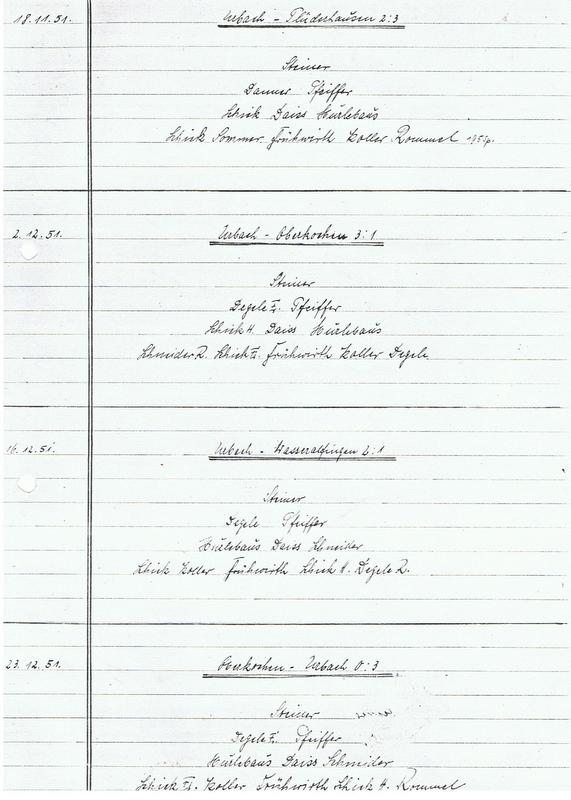 18.11.51. Urbach - Plüderhausen 2:3
Steiner
Danner Pfeiffer
Schick Daiss Hürlebaus
Schick Sommer Frühwirth Koller Rommel
2.12.51. Urbach - Oberkochen 3:1
Steiner
Degele F. Pfeiffer
Schick H. Daiss Hürlebaus
Schneider R. Schick F. Frühwirth Koller Degele
16.12.51. Urbach - Wasseralfingen 2:1
Steiner
Degele Pfeiffer
Hürlebaus Daiss Schneider
Schick Koller Frühwirth Schick H. Degele R.
23.12.51. Oberkochen - Urbach 0:3
Steiner
Degele F. Pfeiffer
Hürlebaus Daiss Schneider
Schick F. Koller Frühwirth Schick H. Rommel